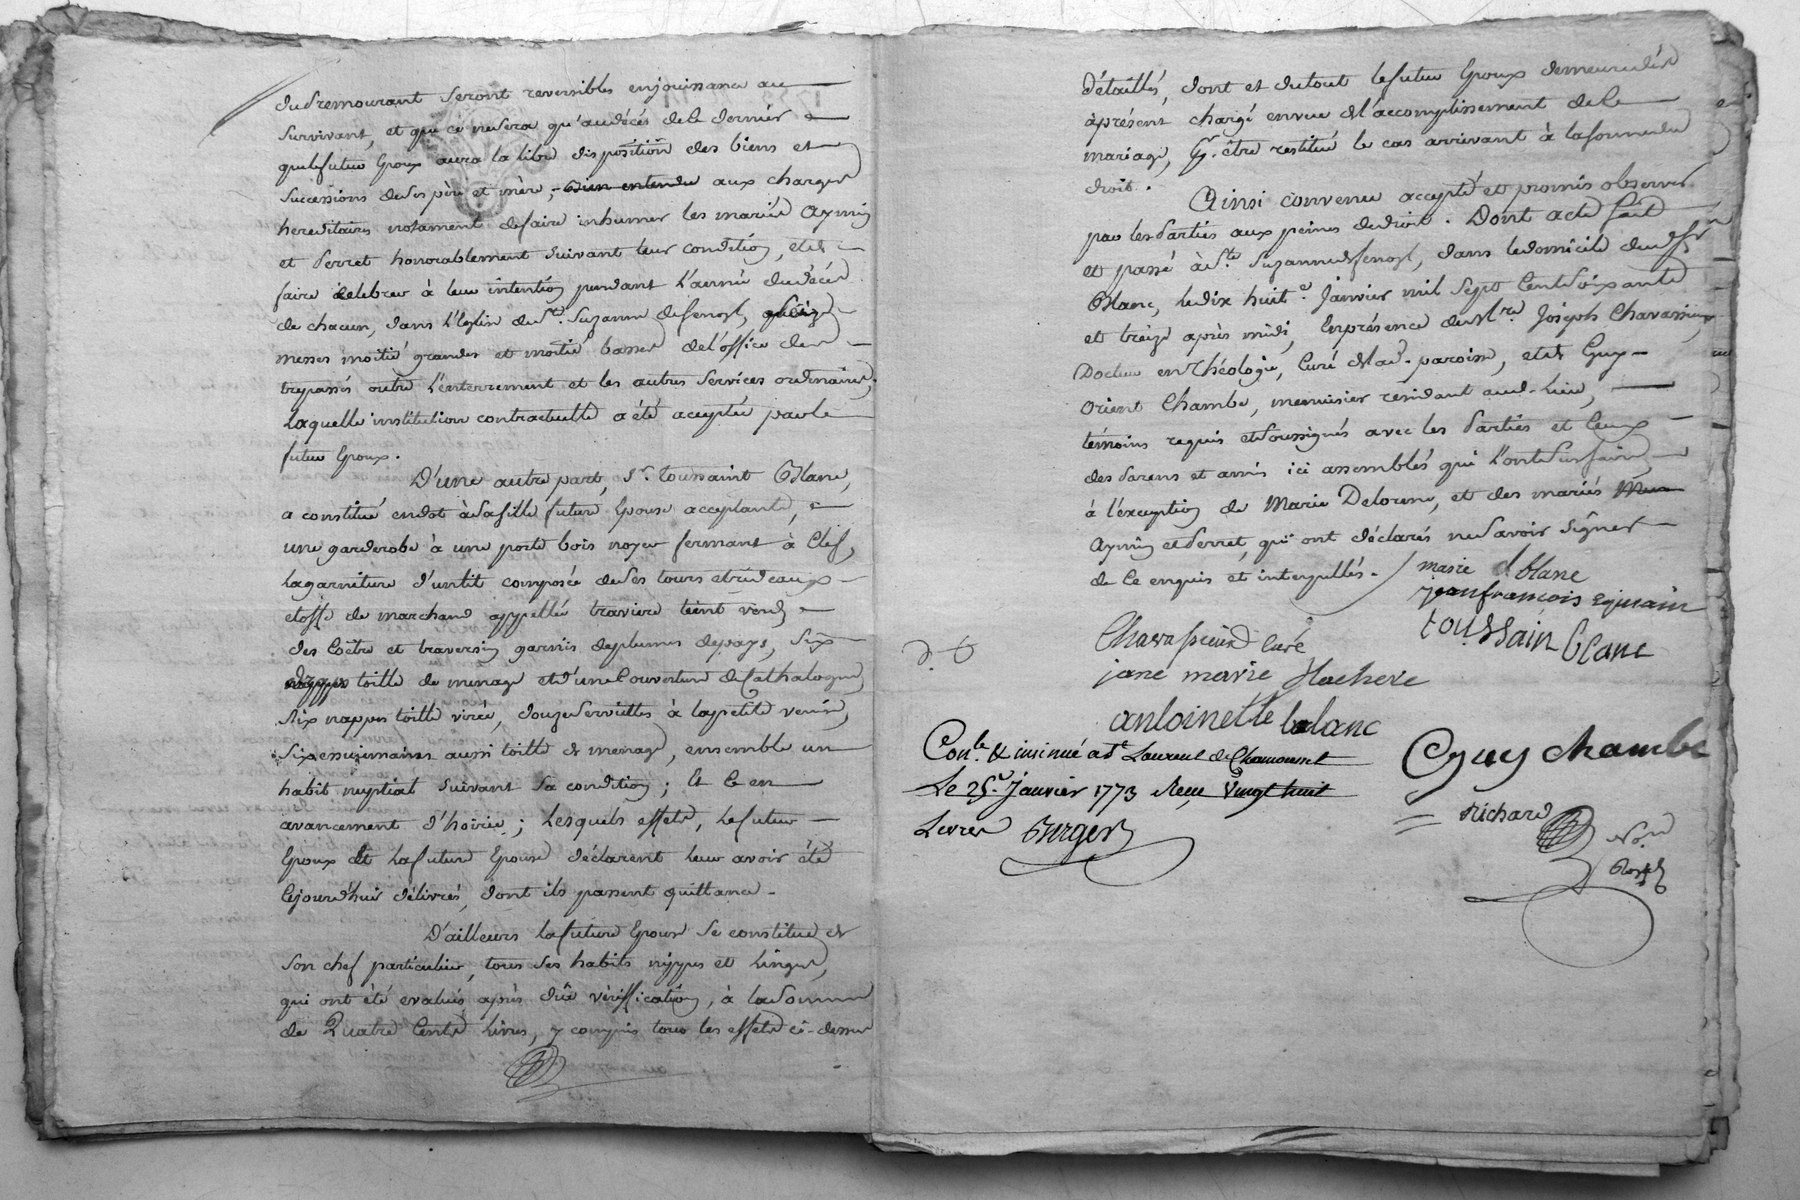 dud. remourant seront reversibles en jouissance au
survivant, et que ce ne sera qu'au décés de le dernier
que le futur Epoux aura la libre disposition des biens et
successions de ses père et mère, bien entendu aux charges
hereditaires notament de faire inhumer les mariés Aymin
et Perret honorablement suivant leur condition, et de
faire célebrer à leur intention pendant l'année du décés
de chacun, dans l'Eglise de Ste. Suzanne
messes moitié grandes et moitié basses de l'office des
trepassés outre l'enterrement et les autres services ordinaires,
Laquelle institution contractuelle a été acceptée par le
futur Epoux.
D'une autre part, Sr. toussaint Blanc,
a constitué en dot à sa fille future Epouse acceptante,
une garderobe à une porte bois noyer fermant à Clef,
la garniture d'un lit composée de ses tours et rideaux
etoffe de marchand appellée traviere teint verd,
des Coëtre et traversin garnis de plumes de pays, Six
toille de menage et d'une Couverture de Cathalogne,
six nappes toille virée, douze serviettes à la petite venise,
Six essuimains aussi toille de menage, ensemble un
habit nuptial suivant sa condition; Et Ce en
avancement d'hoirie; Lesquels effets, le futur
Epoux et La future Epouse déclarent leur avoir été
Cejourd'huir délivrés, dont ils passent quittance.
D'ailleurs la future Epouse se constitue de
son chef particulier, tous ses habits nippes et Linges,
qui ont été evalués après düe vériffication, à la somme
de Quatre Cents Livres, y compris tous les effets ci-dessus
détaillés, dont et du tout le futur Epoux demeure dés
àprésent chargé en vue de l'accomplissement de Le
mariage, Pr. être restitué le cas arrivant à la forme du
droit.
Ainsi convenu accepté et promis observer
par les Parties aux peines de droit. Dont acte fait
et passé à Ste. Suzanne, dans le domicile dud. Sr.
Blanc, le dix huite. Janvier mil Sept Cent Soixante
et treize après midi, En présence de Mre. Joseph Chavassieux
Docteur en Théologie, Curé de lad. paroisse, et de Guy
orient Chambe, menuisier résidant aud. Lieu,
témoins requis et soussignés avec les Parties et Ceux
des Parens et amis ici assemblés qui L'ont su faire,
à l'éxception de Marie Delorme, et des mariés
Aymin et Perret, qui ont déclarés ne Savoir Signer
de Ce enquis et interpellés.
marie blanc
jean françois eymain
toussain blanc
Chavassieux Curé
jane marie flachere
antoinette blanc
Guy chambe
Conlé. & insinué a St Laurent de Chamousset
Le 25e. Janvier 1773 Reçu Vingt huit
Livres
Richard